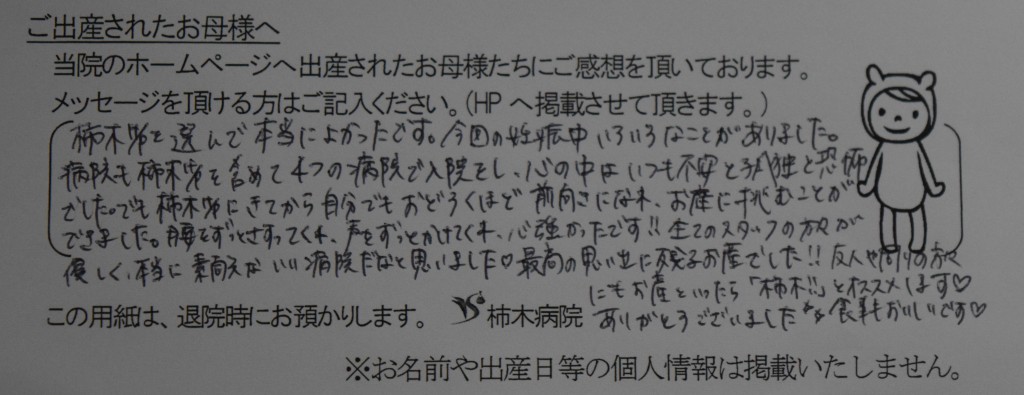 ご出産されたお母様へ
当院のホームページへ出産されたお母様たちにご感想を頂いております。
メッセージを頂ける方はご記入ください。(HPへ掲載させて頂きます。)
柿木病院を選んで本当によかったです。今回の妊娠中いろいろなことがありました。
病院も柿木病院を含めて4つの病院で入院をし、心の中はいつも不安と孤独と恐怖
でした。でも柿木病院にきてから自分でもおどろくほど前向きになれ、お産に挑むことが
できました。腰をずっとさすってくれ、声をずっとかけてくれ、心強かったです!!全てのスタッフの方々が
優しく、本当に素敵な いい病院だなと思いました♡最高の思い出に残るお産でした!!友人や周りの方々
にもお産といったら「柿木!!」とオススメします♡
ありがとうございました 食事もおいしいです♡
この用紙は、退院時にお預かりします。 柿木病院
※お名前や出産日等の個人情報は掲載いたしません。